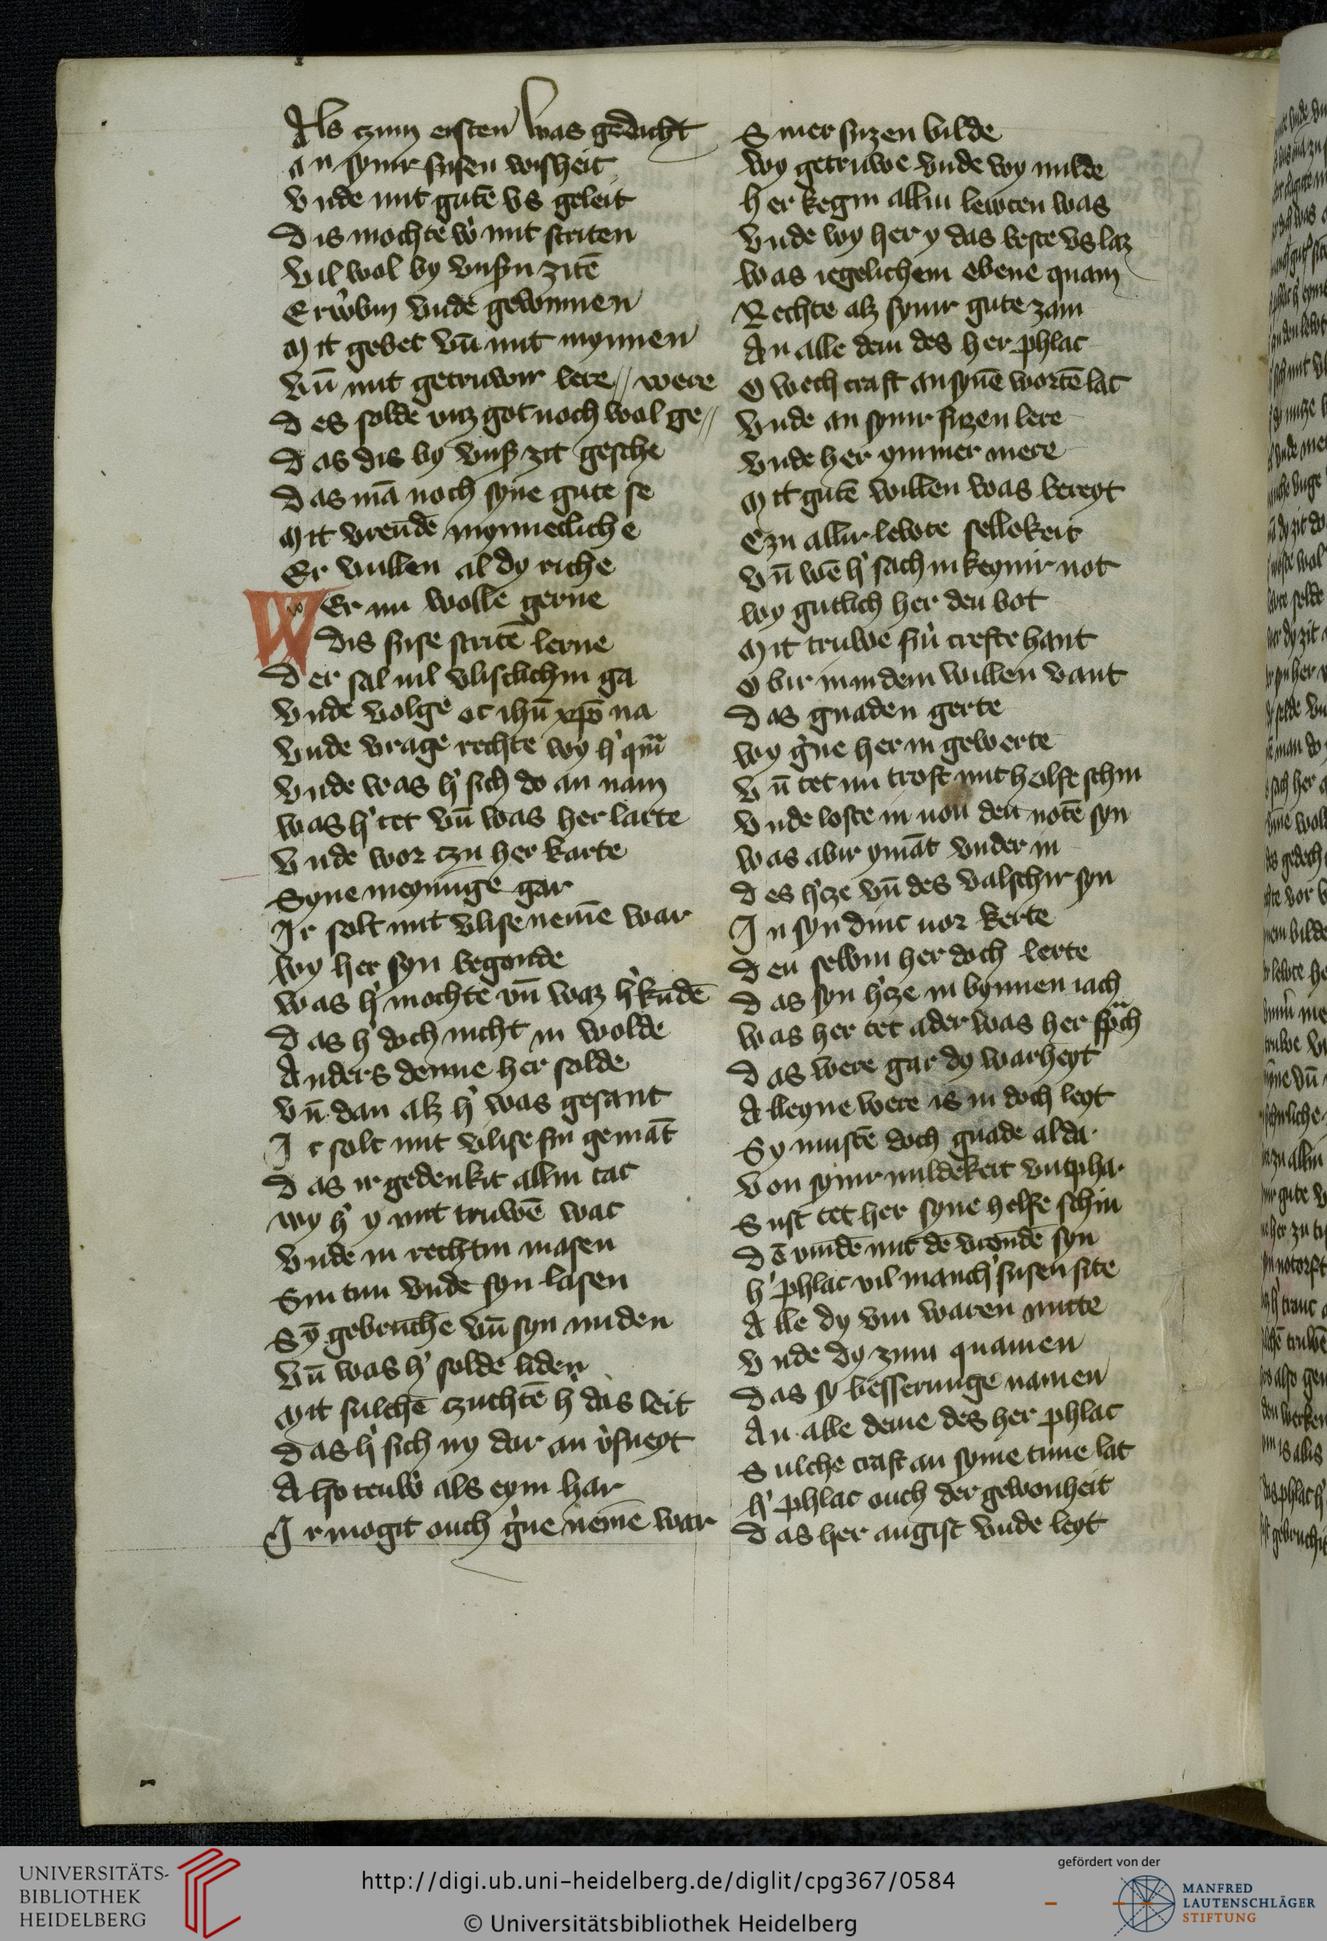 Als czum ersten was gedicht
An synir susen wisheit
Vnde mit gutē vs geleit
Dis mochte w' mit striten
Vil wol by vnß'n zitē
Erw'bin vnde gewinnen
Mit gebet vn̄ mit mynnen
Vn̄ mit getruwir lere // were
Des solde vnz got noch wol ge //
Das dis by vnß' zit gesche
Das mā noch syne gute se
Mit vreudē mynneclich e
Er vullen al dy riche
WEr nu wolle gerne
Dis suse stritē lerne
Der sal vil vlislichin ga
Vnde volge oc ihū xp̄o na
Vnde vrage rechte wy h' qm̄
Vnde was h' sich do an nam
Was h' tet vn̄ was her larte
Vnde wor czu her karte
Syne meynnge gar
Ir solt mit vlise nemē war
Wy her syn begonde
Was h' mochte vn̄ waz h' kūdē
Das h' doch nicht in wolde
Anders denne her solde
Vn̄ dan alz h' was gesant
Ir solt mit vlise sin gemāt
Das ir gedenkit allin tac
Wy h' y mit truwē wac
Vnde in rechtin masen
Sin tun vnde syn lasen
Sȳ gebruche vn̄ syn miden
Vn̄ was h' solde liden
Mit sulchē czuchtē h' das leit
Das h' sich ny dar an v'sneyt
Also teuw' als eym har
Ir mogit ouch g'ne nemē war
Siner suzen bilde
Wy getruwe vnde wy milde
Her kegin allin lewten was
Vnde wy her y das beste vs laz
Was iegelichem ebene quam
Rechte alz synir gute zam
An alle dem des her phlac
O wech craft an synē wortē lac
Vnde an synir suzen lere
Vnde her ymmer mere
Mit gutē willen was bereyt
Czu allir lewte sellekeit
Vn̄ wē h' sach in keynir not
Wy gutlich her den bot
Mit truwe sin' crefte hant
Obir in in dem willen vant
Das gnaden gerte
Wy g'ne her in gewerte
Vn̄ tet im trost mit helfe schin
Vnde loste in uon den notē syn
Was abir ymāt vnder in
Des h'cze vn̄ des valschir syn
In syn dinc uor kerte
Den selbin her doch lerte
Das syn h'cze in bynnen iach
Was her tet ader was her sp̄ch
Das were gar dy warheyt
Alleyne were is in doch leyt
Sy mustē doch gnade alda
Von synir mildekeit vntpha
Sust tet her syne helfe schin
Dē vindē mit dē vrendē syn
H' phlac vil manch' susen site
Alle dy vm waren mitte
Vnde dy zum quamen
Das sy besserunge namen
An alle deme des her phlac
Sulche craft an syme tune lac
H' phlac ouch der gewonheit
Das her angist vnde leyt
UNIVERSITÄTS-
BIBLIOTHEK
HEIDELBERG
http://digi.ub.uni-heidelberg.de/diglit/cpg367/0584
© Universitätsbibliothek Heidelberg
gefördert von der
MANFRED
LAUTENSCHLÄGER
STIFTUNG